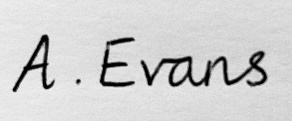 A. Evans